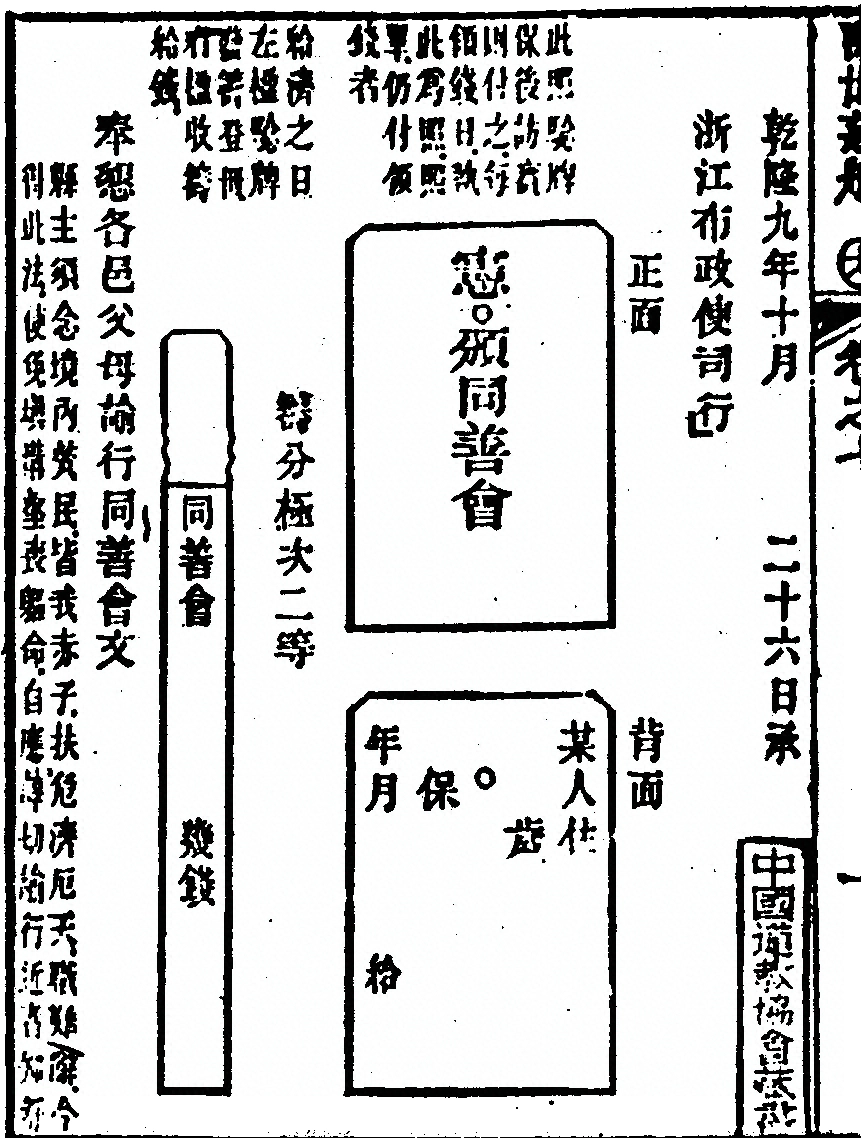 乾隆九年十月 二十六日承
浙江布政使司行
正面
憲頒同善會
背面
某人住
歲
保
年月 給
此照驗牌
保後訪義
則付之行
領錢日執
此爲照照
票仍付領
錢者
籌分極次二等
給濟之日
左櫃驗牌
發籌登冊
右櫃收籌
給錢
同善會 發錢
奉懇各邑父母諭行同善會文
縣主須念境內煢民皆我赤子扶危濟厄天職難辭今
得此法使免塡溝壑喪軀命自應諄切諭行近者知有
中國道教協會